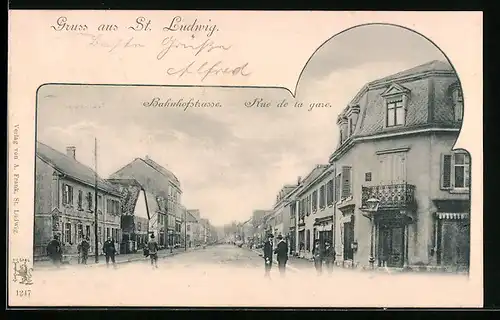 Gruss aus St. Ludwig.
Alfred
Bahnhofstrasse. Rue de la gare.
Verlag von A. Frank, St. Ludwig
1247